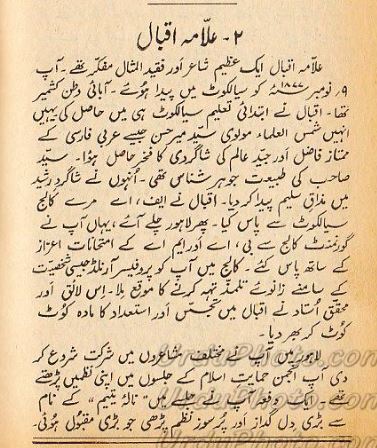 ۲- علّامہ اقبال
علّامہ اقبال ایک عظیم شاعر اور فقید المثال مفکّر تھے۔ آپ
۹؍ نومبر ۱۸۷۷ء کو سیالکوٹ میں پیدا ہوئے۔ آبائی وطن کشمیر
تھا۔ اقبال نے ابتدائی تعلیم سیالکوٹ ہی میں حاصل کی۔ یہیں
انہیں شمس العلماء مولوی سیّد میر حسن جیسے عربی فارسی کے
ممتاز فاضل اور جیّد عالم کی شاگردی کا فخر حاصل ہؤا۔ سیّد
صاحب کی طبیعت جوہر شناس تھی۔ اُنہوں نے شاگردِ رشید
میں مذاقِ سلیم پیدا کر دیا۔ اقبال نے ایف، اے مرے کالج
سیالکوٹ سے پاس کیا۔ پھر لاہور چلے آئے، یہاں آپ نے
گورنمنٹ کالج سے بی، اے اور ایم اے کے امتحانات اعزاز
کے ساتھ پاس کئے۔ کالج میں آپ کو پروفیسر آرنلڈ جیسی شخصیّت
کے سامنے زانوئے تلمّذ تہہ کرنے کا موقع ملا۔ اِس لائق اور
محقّق اُستاد نے اقبال میں تجسّس اور استعداد کا مادہ کُوٹ
کُوٹ کر بھر دیا۔
لاہور میں آپ نے مختلف مشاعروں میں شرکت شروع کر
دی۔ آپ انجمن حمایتِ اسلام کے جلسوں میں اپنی نظمیں پڑھتے
تھے۔ ایک دفعہ آپ نے جلسے میں "نالۂ یتیم" کے نام
سے بڑی دِل گداز اور پُرسوز نظم پڑھی جو بڑی مقبُول ہُوئی۔
UrduPhoto.com
UrduPhoto.com